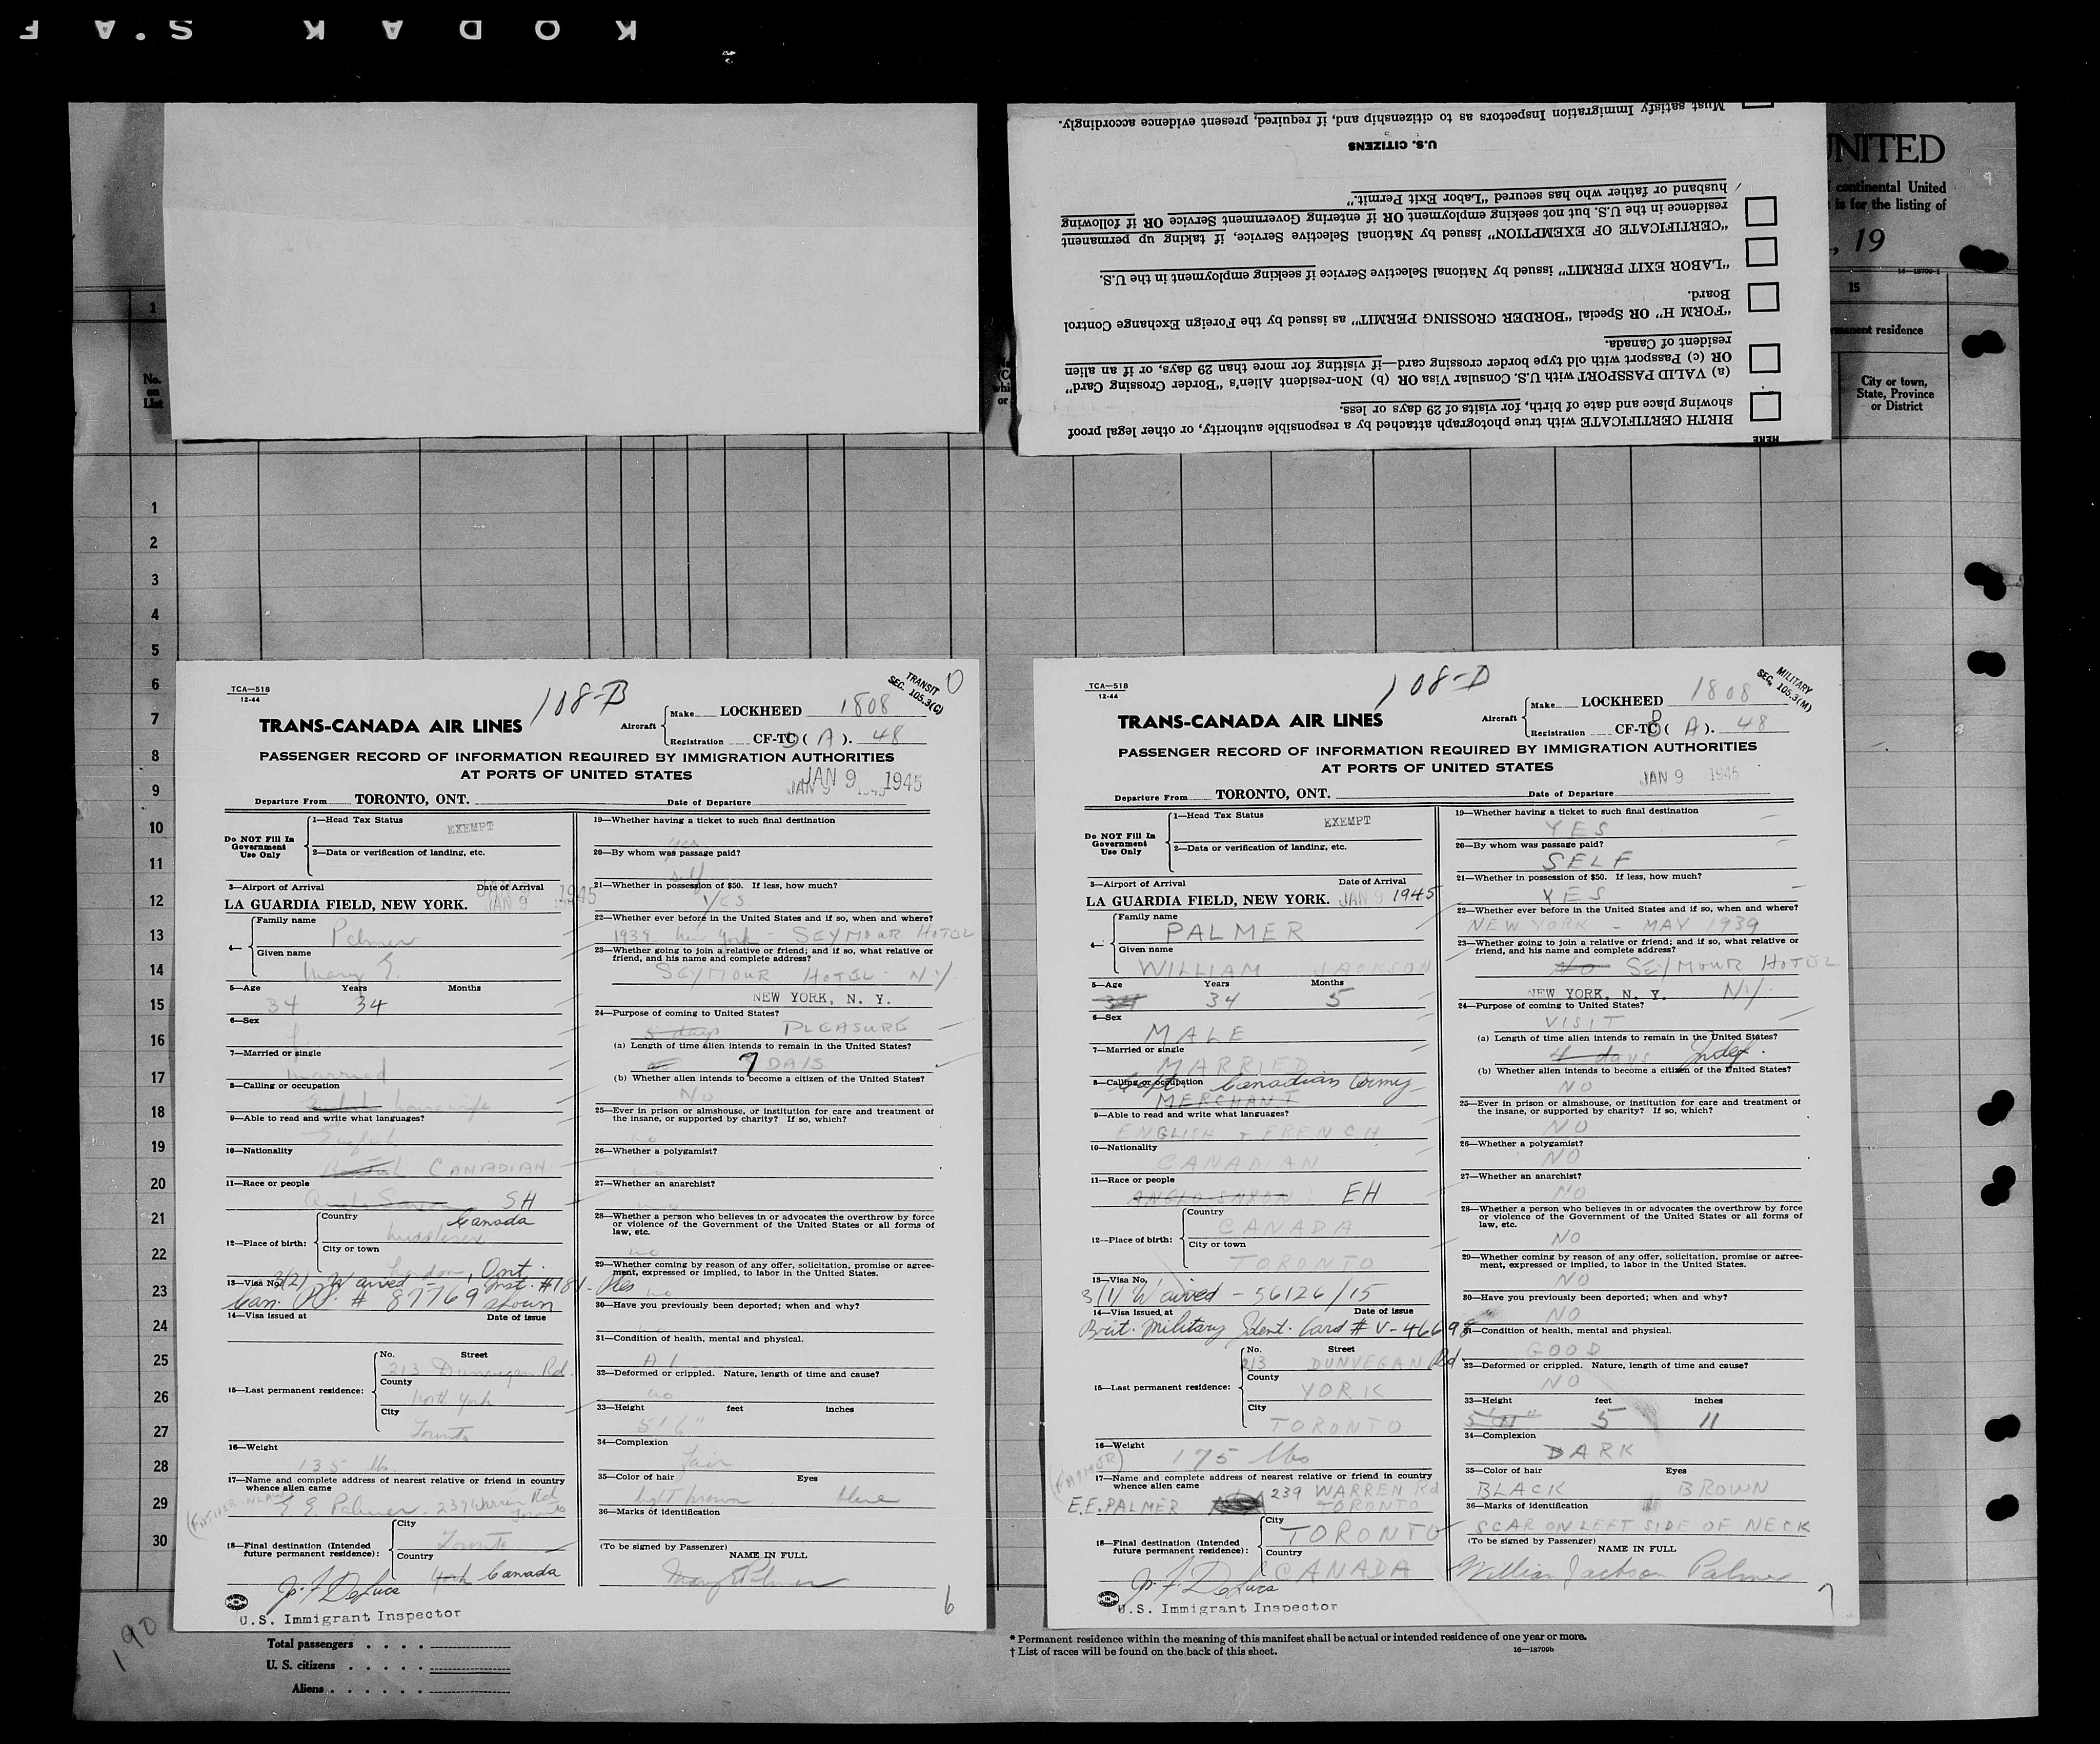 KODAK S.A F
UNITED
continental United
is for the listing of
, 19
16—18709-1
15
manent residence
City or town,
State, Province
or District
Must satisfy Immigration Inspectors as to citizenship and, if required, present evidence accordingly.
U.S. CITIZENS
husband or father who has secured "Labor Exit Permit."
residence in the U.S. but not seeking employment OR if entering Government Service OR if following
"CERTIFICATE OF EXEMPTION" issued by National Selective Service, if taking up permanent
"LABOR EXIT PERMIT" issued by National Selective Service if seeking employment in the U.S.
Board.
"FORM H" OR Special "BORDER CROSSING PERMIT" as issued by the Foreign Exchange Control
resident of Canada.
OR (c) Passport with old type border crossing card—if visiting for more than 29 days, or if an alien
(a) VALID PASSPORT with U.S. Consular Visa OR (b) Non-resident Alien's "Border Crossing Card"
showing place and date of birth, for visits of 29 days or less.
BIRTH CERTIFICATE with true photograph attached by a responsible authority, or other legal proof
HERE
1
No.
on
List
1
2
3
4
5
6
7
8
9
10
11
12
13
14
15
16
17
18
19
20
21
22
23
24
25
26
27
28
29
30
TCA—518
12-44
108-B
TRANSIT
SEC. 105.3(C)
TRANS-CANADA AIR LINES
Aircraft
Make LOCKHEED 1808
Registration CF-TC (A). 48
PASSENGER RECORD OF INFORMATION REQUIRED BY IMMIGRATION AUTHORITIES
AT PORTS OF UNITED STATES
JAN 9 1945
Departure From TORONTO, ONT. Date of Departure
Do NOT Fill In
Government
Use Only
1—Head Tax Status EXEMPT
2—Data or verification of landing, etc.
3—Airport of Arrival Date of Arrival
LA GUARDIA FIELD, NEW YORK. JAN 9 1945
4—
Family name
Palmer
Given name
Mary E.
5—Age Years Months
34 34
6—Sex
f
7—Married or single
married
8—Calling or occupation
housewife
9—Able to read and write what languages?
English
10—Nationality
British CANADIAN
11—Race or people
Anglo Saxon SH
12—Place of birth:
Country Canada
Middlesex
City or town
London, Ont.
13—Visa No. 3(2) Waived - Inst. #181-
Can. PP. # 87769 shown
14—Visa issued at Date of issue
15—Last permanent residence:
No. Street
213 Dunvegan Rd.
County
North York
City
Toronto
16—Weight
135 lbs
17—Name and complete address of nearest relative or friend in country
whence alien came
(FATHER IN LAW) E E Palmer. 239 Warren Rd
Toronto
18—Final destination (Intended
future permanent residence):
City
Toronto
Country
York Canada
J. F. DeLuca
U.S. Immigrant Inspector
19—Whether having a ticket to such final destination
yes
20—By whom was passage paid?
self
21—Whether in possession of $50. If less, how much?
YES.
22—Whether ever before in the United States and if so, when and where?
1939 New York - SEYMOUR HOTEL
23—Whether going to join a relative or friend; and if so, what relative or
friend, and his name and complete address?
SEYMOUR HOTEL N.Y.
NEW YORK, N. Y.
24—Purpose of coming to United States?
5 days PLEASURE
(a) Length of time alien intends to remain in the United States?
7 DAYS
(b) Whether alien intends to become a citizen of the United States?
No
25—Ever in prison or almshouse, or institution for care and treatment of
the insane, or supported by charity? If so, which?
no
26—Whether a polygamist?
no
27—Whether an anarchist?
no
28—Whether a person who believes in or advocates the overthrow by force
or violence of the Government of the United States or all forms of
law, etc.
no
29—Whether coming by reason of any offer, solicitation, promise or agree-
ment, expressed or implied, to labor in the United States.
no
30—Have you previously been deported; when and why?
31—Condition of health, mental and physical.
A1
32—Deformed or crippled. Nature, length of time and cause?
no
33—Height feet inches
5' 6"
34—Complexion
fair
35—Color of hair Eyes
light brown blue
36—Marks of identification
(To be signed by Passenger)
NAME IN FULL
Mary E Palmer
6
TCA—518
12-44
108-D
MILITARY
SEC. 105.3(M)
TRANS-CANADA AIR LINES
Aircraft
Make LOCKHEED 1808
Registration CF-TC (A). 48
PASSENGER RECORD OF INFORMATION REQUIRED BY IMMIGRATION AUTHORITIES
AT PORTS OF UNITED STATES
JAN 9 1945
Departure From TORONTO, ONT. Date of Departure
Do NOT Fill In
Government
Use Only
1—Head Tax Status EXEMPT
2—Data or verification of landing, etc.
3—Airport of Arrival Date of Arrival
LA GUARDIA FIELD, NEW YORK. JAN 9 1945
4—
Family name
PALMER
Given name
WILLIAM JACKSON
5—Age Years Months
34 5
6—Sex
MALE
7—Married or single
MARRIED
8—Calling or occupation
Capt. Canadian Army
MERCHANT
9—Able to read and write what languages?
ENGLISH + FRENCH
10—Nationality
CANADIAN
11—Race or people
ANGLO-SAXON EH
12—Place of birth:
Country
CANADA
City or town
TORONTO
13—Visa No.
3(1) Waived - 56126/15
14—Visa issued at Date of issue
Brit. Military Ident. Card # V-46698
15—Last permanent residence:
No. Street
213 DUNVEGAN Rd.
County
YORK
City
TORONTO
16—Weight
175 lbs
17—Name and complete address of nearest relative or friend in country
whence alien came
(FATHER)
E.E. PALMER 239 WARREN Rd
TORONTO
18—Final destination (Intended
future permanent residence):
City
TORONTO
Country
CANADA
J. F. DeLuca
U.S. Immigrant Inspector
19—Whether having a ticket to such final destination
YES
20—By whom was passage paid?
SELF
21—Whether in possession of $50. If less, how much?
YES
22—Whether ever before in the United States and if so, when and where?
NEW YORK - MAY 1939
23—Whether going to join a relative or friend; and if so, what relative or
friend, and his name and complete address?
No SEYMOUR HOTEL
NEW YORK, N. Y. N.Y.
24—Purpose of coming to United States?
VISIT
(a) Length of time alien intends to remain in the United States?
4 days Indef.
(b) Whether alien intends to become a citizen of the United States?
NO
25—Ever in prison or almshouse, or institution for care and treatment of
the insane, or supported by charity? If so, which?
NO
26—Whether a polygamist?
NO
27—Whether an anarchist?
NO
28—Whether a person who believes in or advocates the overthrow by force
or violence of the Government of the United States or all forms of
law, etc.
NO
29—Whether coming by reason of any offer, solicitation, promise or agree-
ment, expressed or implied, to labor in the United States.
NO
30—Have you previously been deported; when and why?
NO
31—Condition of health, mental and physical.
GOOD
32—Deformed or crippled. Nature, length of time and cause?
NO
33—Height feet inches
5'11" 5 11
34—Complexion
DARK
35—Color of hair Eyes
BLACK BROWN
36—Marks of identification
SCAR ON LEFT SIDE OF NECK
(To be signed by Passenger)
NAME IN FULL
William Jackson Palmer
7
190
Total passengers
U. S. citizens
Aliens
* Permanent residence within the meaning of this manifest shall be actual or intended residence of one year or more.
† List of races will be found on the back of this sheet.
16—18709b